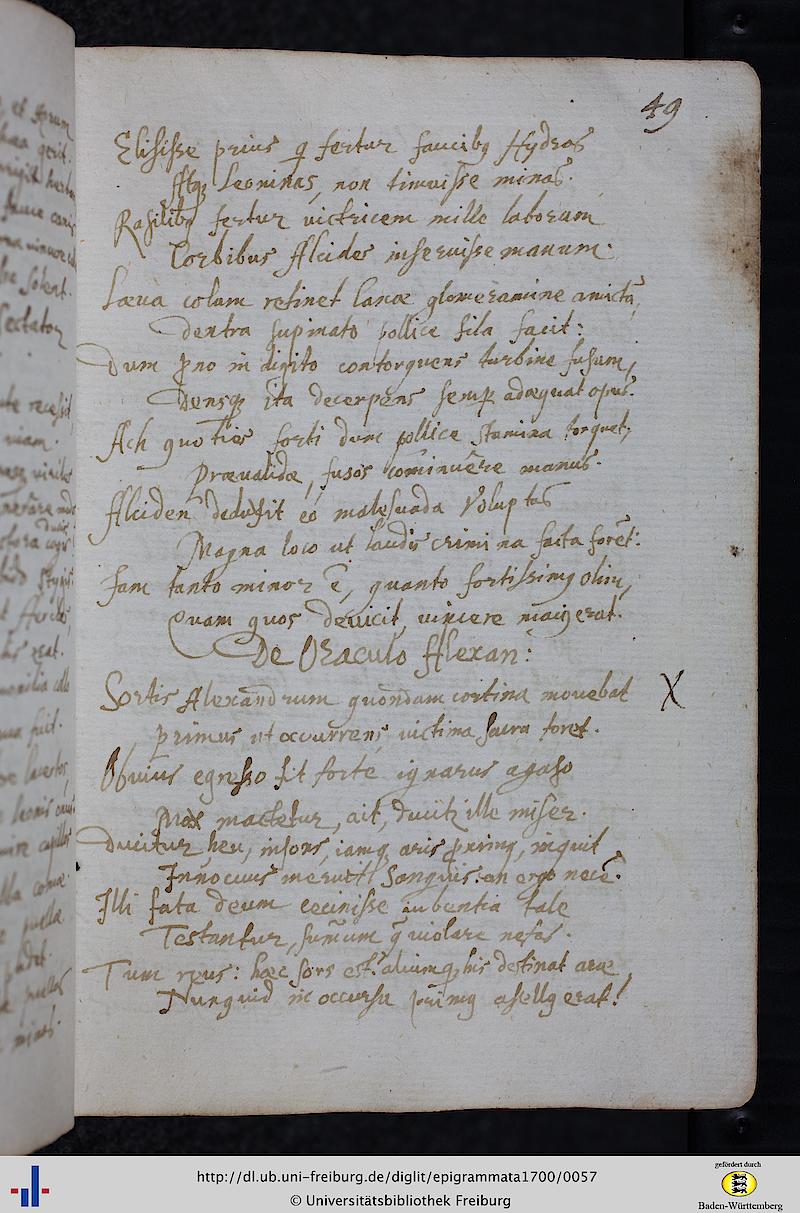 49
Elisisse prius q fertur faucibq Hydros
Atq Leoninas, non timuisse minas.
Rasilibq fertur victricem mille laborum
Corbibus Alcides inseruisse manum.
Læva colum retinet lanæ glomeramine amictū,
dextra supinato pollice fila facit:
Dum pno in digito contorquens turbine fusum,
Densq ita decerpens semp adæquat opus.
Ach quoties forti dum pollice stamina torquet,
Prævalidæ, fusos cōminuēre manus.
Alciden deduxit eo malesuada Voluptas
Magna loco ut laudis crimina facta forēt:
Iam tanto minor ē, quanto fortissimq olim,
Quam quos devicit, vincere maiq erat.
De Oraculo Alexan:
Sortis Alexandrum quondam cortina movebat X
primus ut occurrens, victima sacra foret.
Obvius egresso fit forte ignarus agaso
Mox mactetur, ait, ille miser.
Ducitur heu, insons, iamq aris primq, inquit
Innocuus meruit sanguis an ergo necē.
Illi fata deum cecinisse iubentia tale
Testantur, sum̄um q violare nefas.
Tum reus: hæc sors est? alium his destinat aræ,
Nunquid in occursu primq asellq erat!
http://dl.ub.uni-freiburg.de/diglit/epigrammata1700/0057
© Universitätsbibliothek Freiburg
gefördert durch
Baden-Württemberg